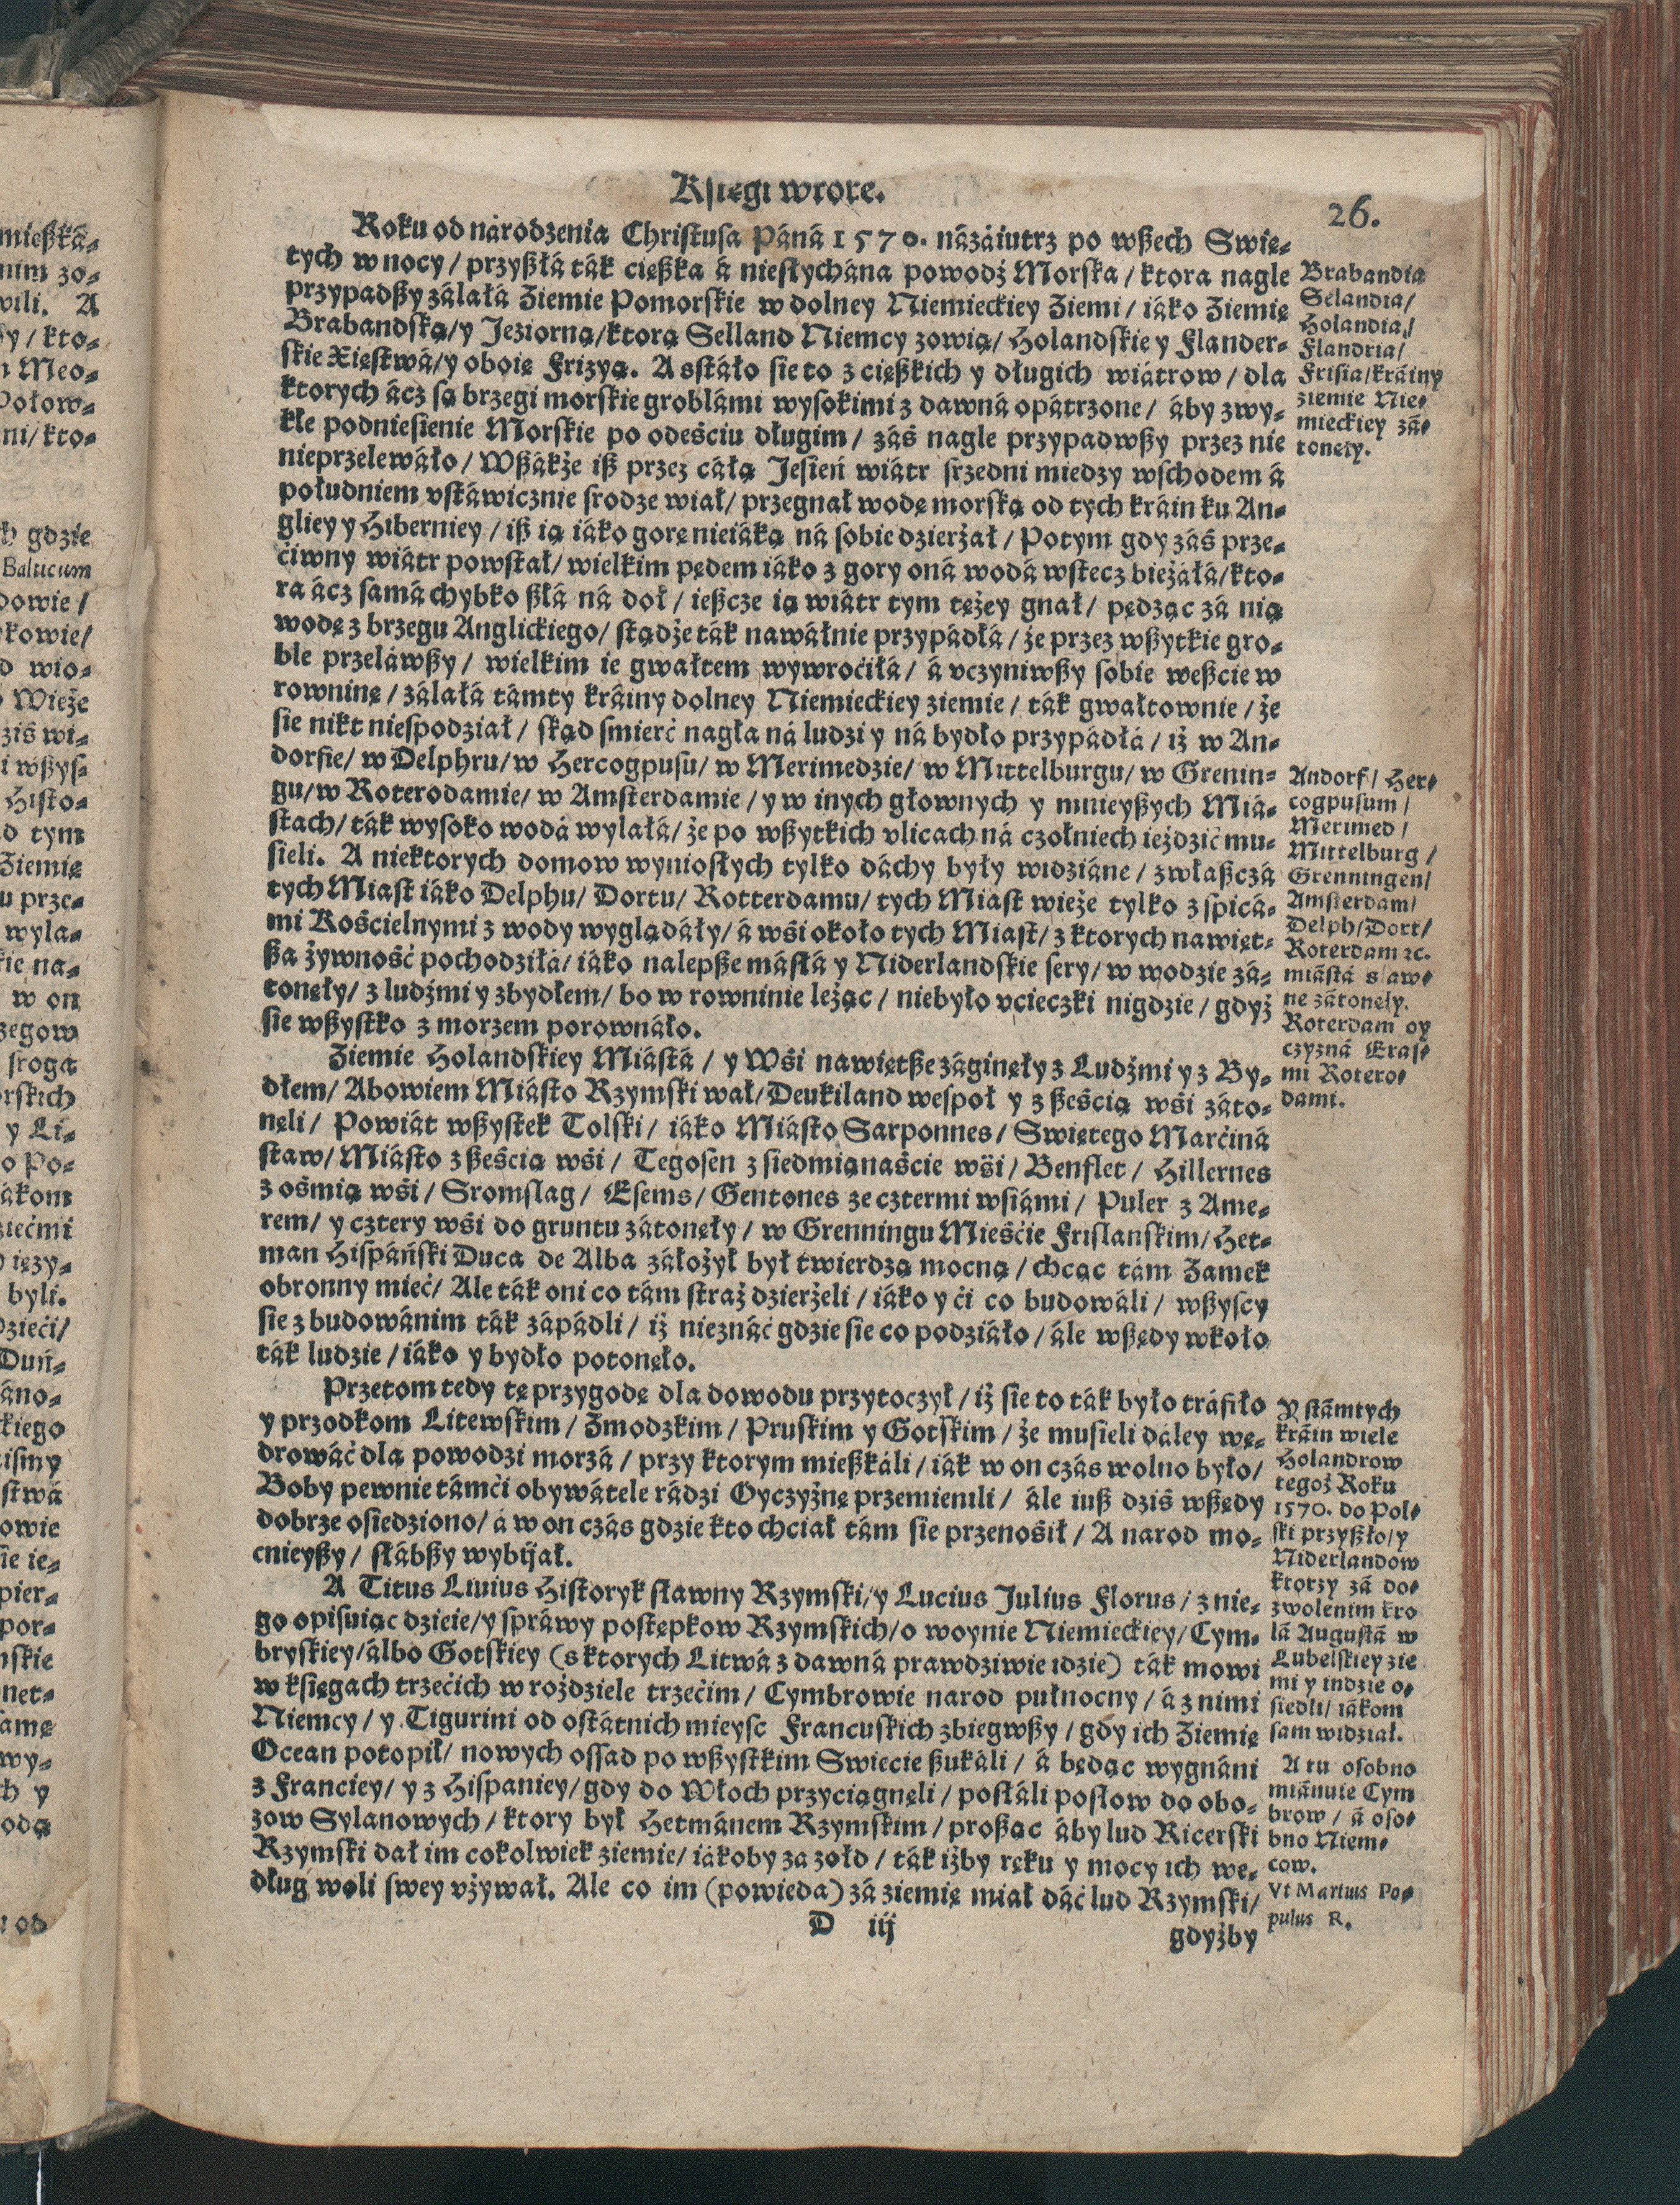 Kśięgi wtore.
26.
Roku od národzenia Christusa Páná 1570. názáiutrz po wßech Swię⸗
tych w nocy / przyßłá ták cięßka á niesłychána powodź Morska / ktora nagle
przypadßy zálałá Ziemie Pomorskie w dolney Niemieckiey Ziemi / iáko Ziemię
Brabandską/y Jeziorną/ktorą Selland Niemcy zowią/ Holandskie y Flander⸗
skie Xięstwá/y oboię Frizyą. A sstáło sie to z cięßkich y długich wiátrow / dla
ktorych ácz są brzegi morskie groblámi wysokimi z dawná opátrzone / áby zwy⸗
kłe podniesienie Morskie po odeściu długim / záś nagle przypadwßy przez nie
nieprzelewáło / Wßákże iß przez cáłą Jesień wiátr srzedni miedzy wschodem á
południem vstáwicznie srodze wiał/ przegnał wodę morską od tych kráin ku An⸗
gliey y Hiberniey / iß ią iáko gorę nieiáką ná sobie dzierżał / Potym gdy záś prze⸗
ćiwny wiátr powstał/ wielkim pędem iáko z gory oná wodá wstecz bieżáłá/kto⸗
ra ácz samá chybko ßłá ná doł / ießcze ią wiátr tym tężey gnał / pędząc zá nią
wodę z brzegu Anglickiego/ stądże ták nawáłnie przypádłá / że przez wßytkie gro⸗
ble przeláwßy / wielkim ie gwałtem wywroćiłá / á vczyniwßy sobie weßcie w
rowninę / zálałá támty kráiny dolney Niemieckiey ziemie / ták gwałtownie / że
sie nikt niespodział / skąd smierć nagła ná ludzi y ná bydło przypádłá / iż w An⸗
dorfie/ w Delphru/ w Hercogpusu/ w Merimedzie/ w Mittelburgu/ w Grenin⸗
gu/w Roterodamie/ w Amsterdamie / y w inych głownych y mnieyßych Miá⸗
stach/ ták wysoko wodá wylałá/ że po wßytkich vlicach ná czołniech ieździć mu⸗
sieli. A niektorych domow wyniosłych tylko dáchy były widziáne / zwłaßczá
tych Miast iáko Delphu/ Dortu/ Rotterdamu/ tych Miast wieże tylko z spicá⸗
mi Kościelnymi z wody wyglądáły/ á wśi około tych Miast/ z ktorych nawięt⸗
ßa żywność pochodziłá/ iáko nalepße másłá y Niderlandskie sery/ w wodzie zá⸗
tonęły/ z ludźmi y zbydłem/ bo w rowninie leżąc / niebyło vcieczki nigdzie / gdyż
sie wßystko z morzem porownáło.
Ziemie Holandskiey Miástá / y Wśi nawiętße záginęły z Ludźmi y z By⸗
dłem/ Abowiem Miásto Rzymski wał/ Deukiland wespoł y z ßeścią wśi záto⸗
nęli / Powiát wßystek Tolski / iáko Miásto Sarponnes/ Swiętego Marćiná
staw/ Miásto z ßeścią wśi / Tegosen z siedmiąnaście wśi / Benflet / Hillernes
z ośmią wśi / Sromslag / Esems / Gentones ze cztermi wsiámi / Puler z Ame⸗
rem/ y cztery wśi do gruntu zátonęły / w Grenningu Mieśćie Frislanskim/ Het⸗
man Hispáński Duca de Alba záłożył był twierdzą mocną / chcąc tám Zamek
obronny mieć/ Ale ták oni co tám straż dzierżeli / iáko y ći co budowáli / wßyscy
sie z budowánim ták zápádli / iż nieznáć gdzie sie co podziáło / ále wßędy wkoło
ták ludzie / iáko y bydło potonęło.
Przetom tedy tę przygodę dla dowodu przytoczył / iż sie to ták było tráfiło
y przodkom Litewskim / Zmodzkim / Pruskim y Gotskim / że musieli dáley wę⸗
drowáć dla powodzi morzá / przy ktorym mießkáli / iák w on czás wolno było/
Boby pewnie támći obywátele rádzi Oyczyżnę przemienili / ále iuß dziś wßędy
dobrze osiedziono/ á w on czás gdzie kto chciał tám sie przenośił / A narod mo⸗
cnieyßy / słábßy wybijał.
A Titus Liuius Historyk sławny Rzymski/y Lucius Julius Florus / z nie⸗
go opisuiąc dzieie/y spráwy postępkow Rzymskich/o woynie Niemieckiey/ Cym⸗
bryskiey/álbo Gotskiey (s ktorych Litwá z dawná prawdziwie idzie) ták mowi
w księgach trzećich w rożdziele trzećim / Cymbrowie narod pułnocny / á z nimi
Niemcy / y Tigurini od ostátnich mieysc Francuskich zbiegwßy / gdy ich Ziemię
Ocean potopił/ nowych ossad po wßystkim Swiecie ßukáli / á będąc wygnáni
z Franciey/ y z Hispaniey/ gdy do Włoch przyciągnęli / posłáli posłow do obo⸗
zow Sylanowych / ktory był Hetmánem Rzymskim / proßąc áby lud Ricerski
Rzymski dał im cokolwiek ziemie/ iákoby za zołd / ták iżby ręku y mocy ich we⸗
dług woli swey vżywał. Ale co im (powieda) zá ziemię miał dáć lud Rzymski/
D iij
gdyżby
Brabandia
Selandia/
Holandia/
Flandria/
Frisia/kráiny
ziemie Nie⸗
mieckiey zá⸗
tonęły.
Andorf/ Her⸗
cogpusum /
Merimed /
Mittelburg /
Grenningen/
Amsterdam/
Delph/Dort/
Roterdam ꝛc.
miástá sław⸗
ne zátonęły.
Roterdam oy
czyzná Eras⸗
mi Rotero⸗
dami.
Y stámtych
kráin wiele
Holandrow
tegoż Roku
1570. do Pol⸗
ski przyßło/y
Niderlandow
ktorzy zá do⸗
zwolenim kro
lá Augustá w
Lubelskiey zie
mi y indzie o⸗
siedli/ iákom
sam widział.
A tu osobno
miánuie Cym
brow / á oso⸗
bno Niem⸗
cow.
Vt Martius Po⸗
pulus R.
mießká⸗
nim zo⸗
wili. A
y / kto⸗
Meo⸗
Połow⸗
ni/ kto⸗
gdzie
Balticum
dowie /
kowie/
wio⸗
Wieże
ziś wi⸗
i wßys⸗
Histo⸗
d tym
Ziemię
u prze⸗
wyla⸗
kie na⸗
w on
zegow
sroga
rskich
y Li⸗
o Po⸗
ákom
ziećmi
ięzy⸗
byli.
dzieći/
Duń⸗
áno⸗
kiego
ismy
stwá
owie
ie ie⸗
pier⸗
por⸗
nskie
net⸗
samę
wy⸗
ch y
odą
od